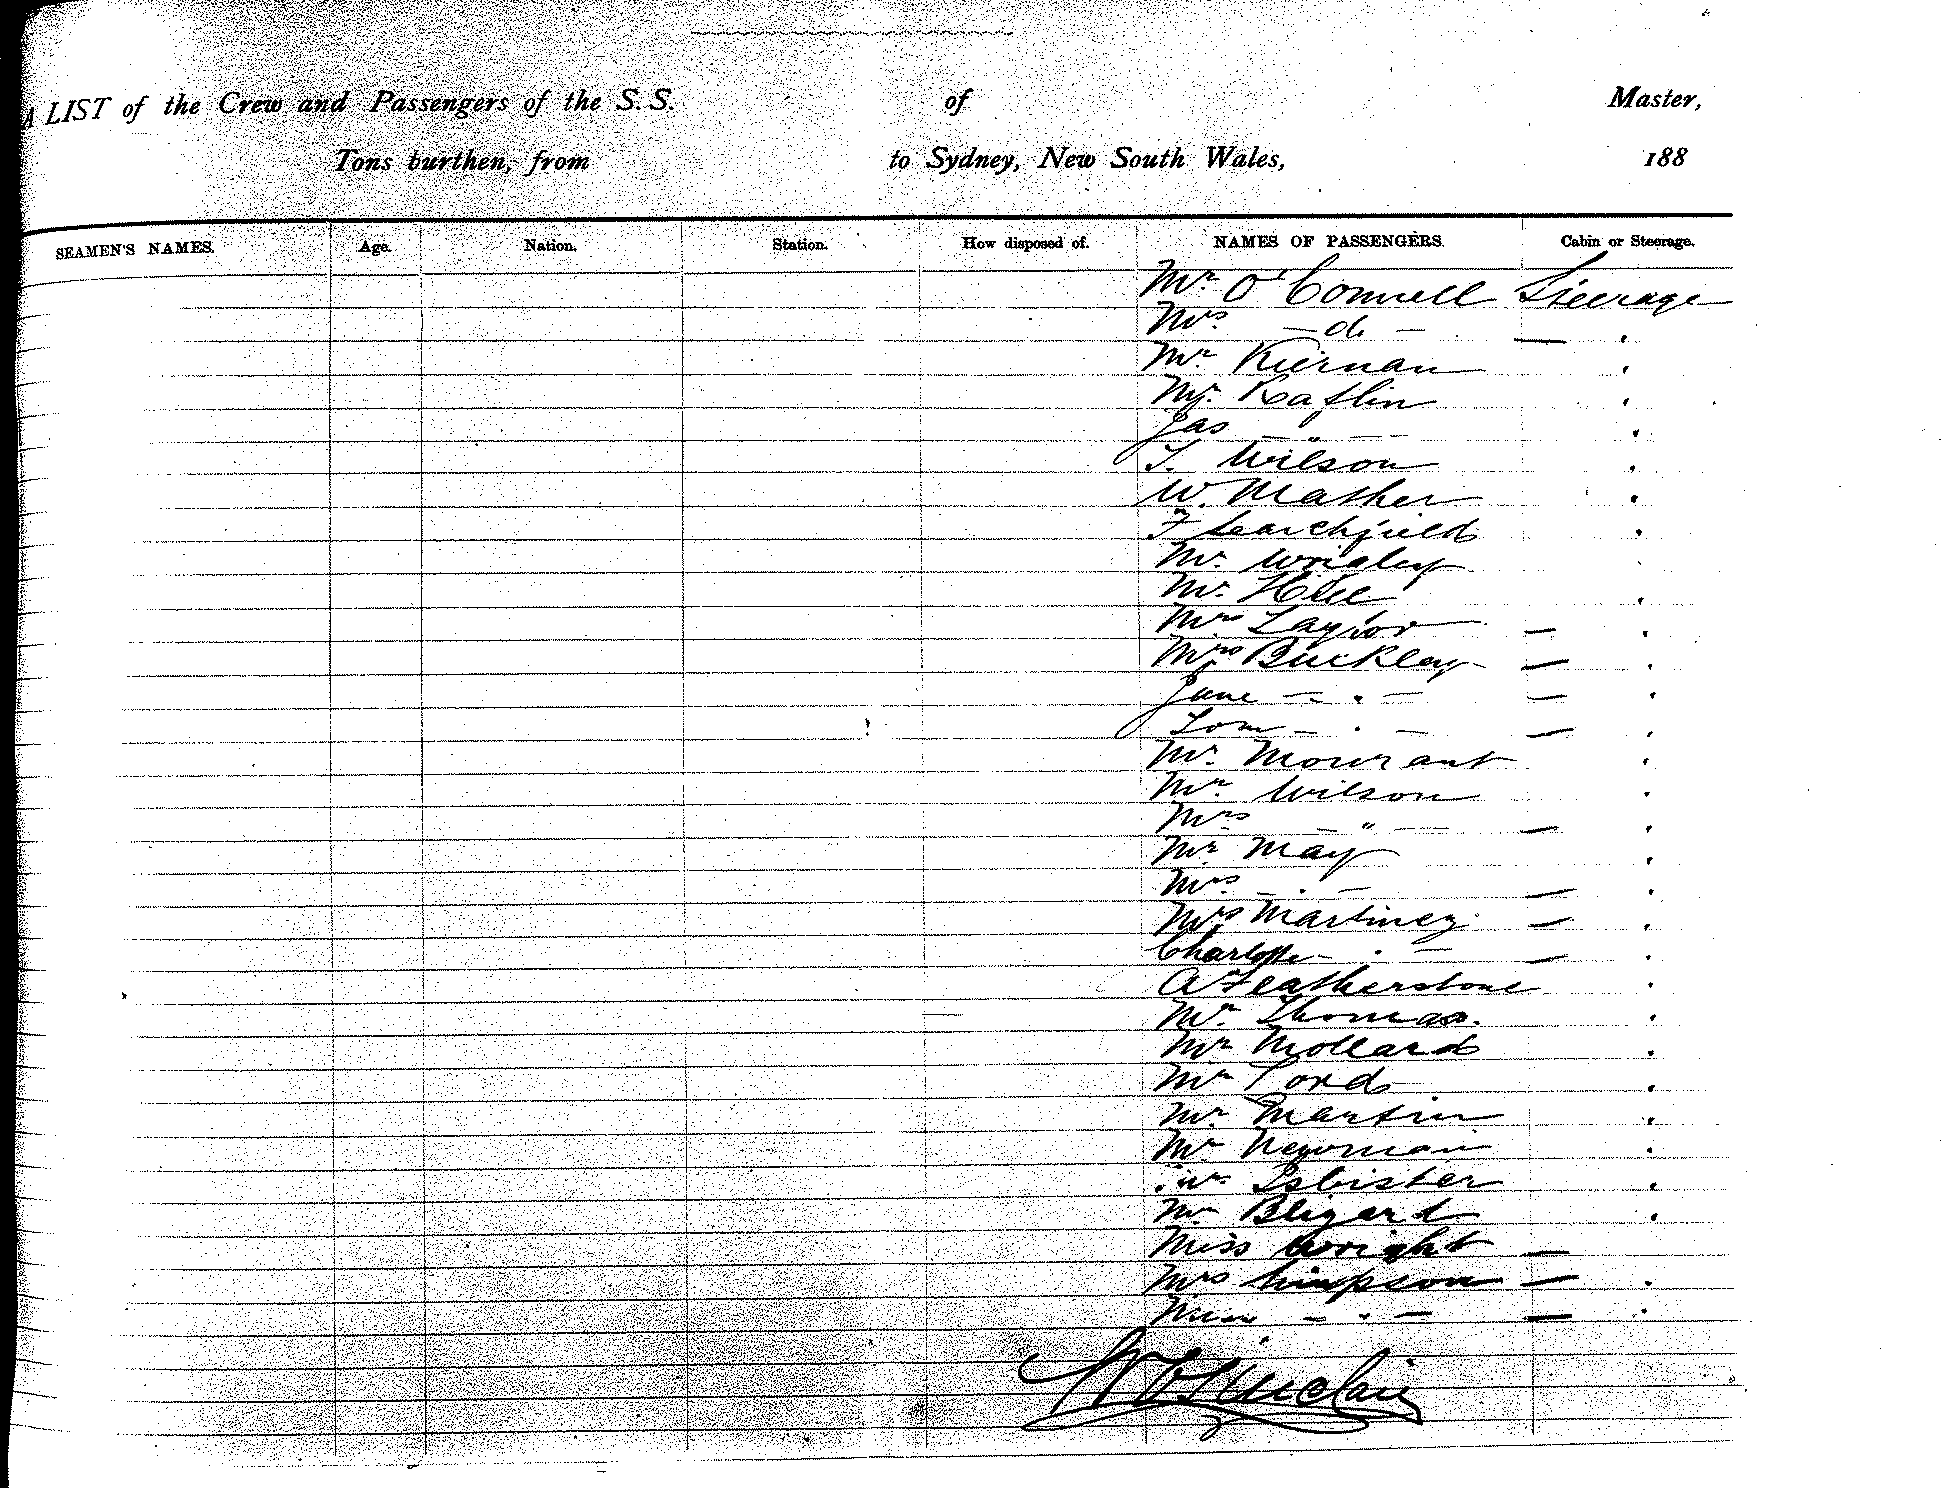 A LIST of the Crew and Passengers of the S.S. of Master,
Tons burthen, from to Sydney, New South Wales, 188
SEAMEN'S NAMES. Age. Nation. Station. How disposed of. NAMES OF PASSENGERS. Cabin or Steerage.
Mr O'Connell Steerage
Mrs — do — — "
Mr Kiernan "
Mr. Kaflin "
Jas — " — "
T. Wilson "
W. Mather "
F Searchfield "
Mr. Wrigley
Mr. Hill "
Mrs Taylor — "
Mrs Buckley — "
Jane — " — — "
Tom — " — — "
Mr. Mourant "
Mr Wilson "
Mrs — " — — "
Mr May "
Mrs — " — — "
Mrs Martinez — "
Charlotte — " — — "
A Featherstone "
Mr. Thomas. "
Mr Mollard "
Mr Lord "
Mr. Martin "
Mr Newman "
Mr. Isbister "
Mr Blizard "
Miss Wright —
Mrs Simpson — "
Miss — " — — "
Sinclair